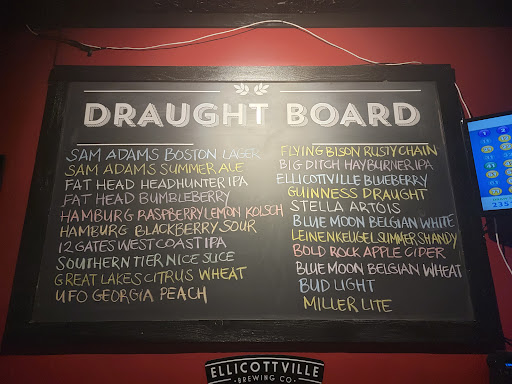 DRAUGHT BOARD
SAM ADAMS BOSTON LAGER
SAM ADAMS SUMMER ALE
FAT HEAD HEADHUNTER IPA
FAT HEAD BUMBLEBERRY
HAMBURG RASPBERRY LEMON KOLSCH
HAMBURG BLACKBERRY SOUR
12 GATES WEST COAST IPA
SOUTHERN TIER NICE SLICE
GREAT LAKES CITRUS WHEAT
UFO GEORGIA PEACH
FLYING BISON RUSTY CHAIN
BIG DITCH HAYBURNER IPA
ELLICOTTVILLE BLUEBERRY
GUINNESS DRAUGHT
STELLA ARTOIS
BLUE MOON BELGIAN WHITE
LEINENKEUGEL SUMMER SHANDY
BOLD ROCK APPLE CIDER
BLUE MOON BELGIAN WHEAT
BUD LIGHT
MILLER LITE
ELLICOTTVILLE
BREWING CO.